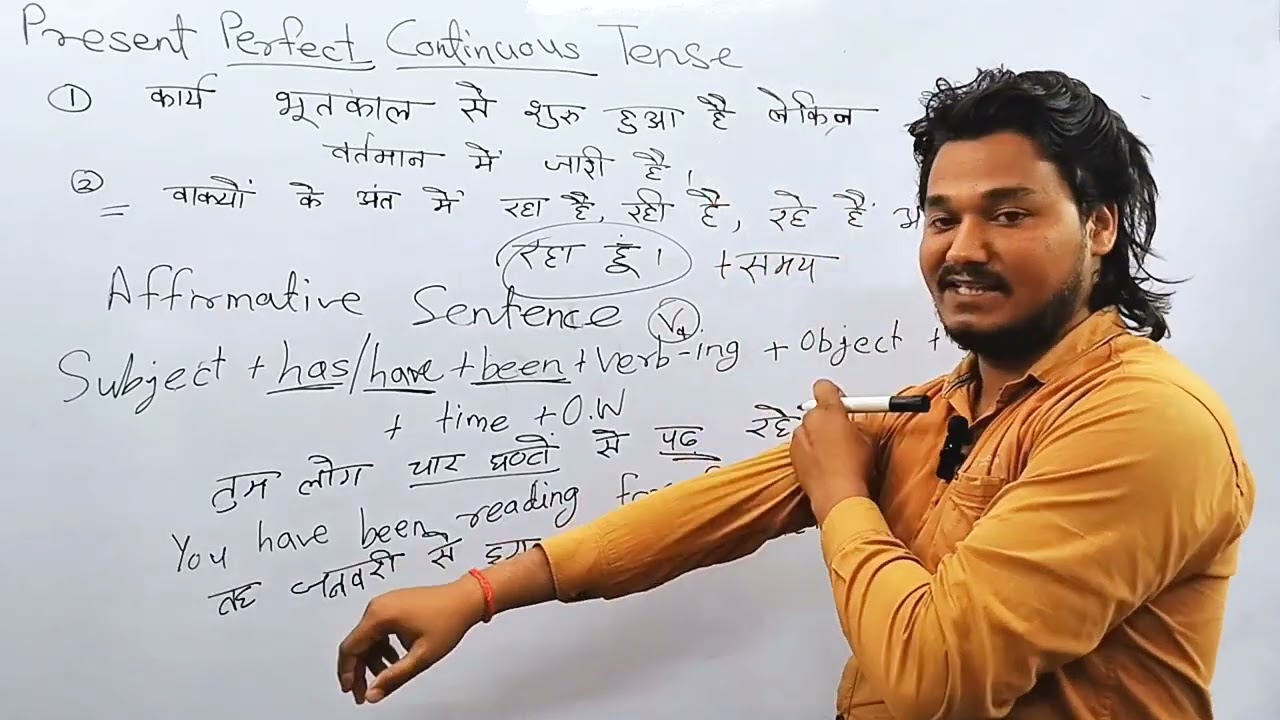 Present Perfect Continuous Tense
① कार्य भूतकाल से शुरु हुआ है लेकिन
वर्तमान में जारी है।
② वाक्यों के अंत में रहा है, रही है, रहे हैं
रहा हूं। + समय
Affirmative Sentence
V₄
Subject + has/have + been + verb-ing + Object +
+ time + O.W
तुम लोग चार घण्टों से पढ़ रहे
You have been reading
वह जनवरी से